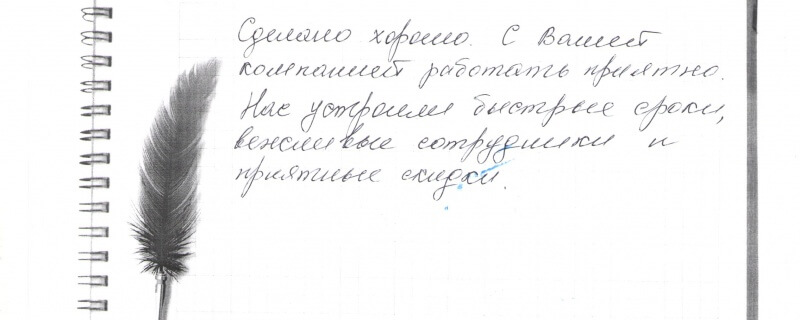 Сделано хорошо. С Вашей
компанией работать приятно.
Нас устроили быстрые сроки,
вежливые сотрудники и
приятные скидки.